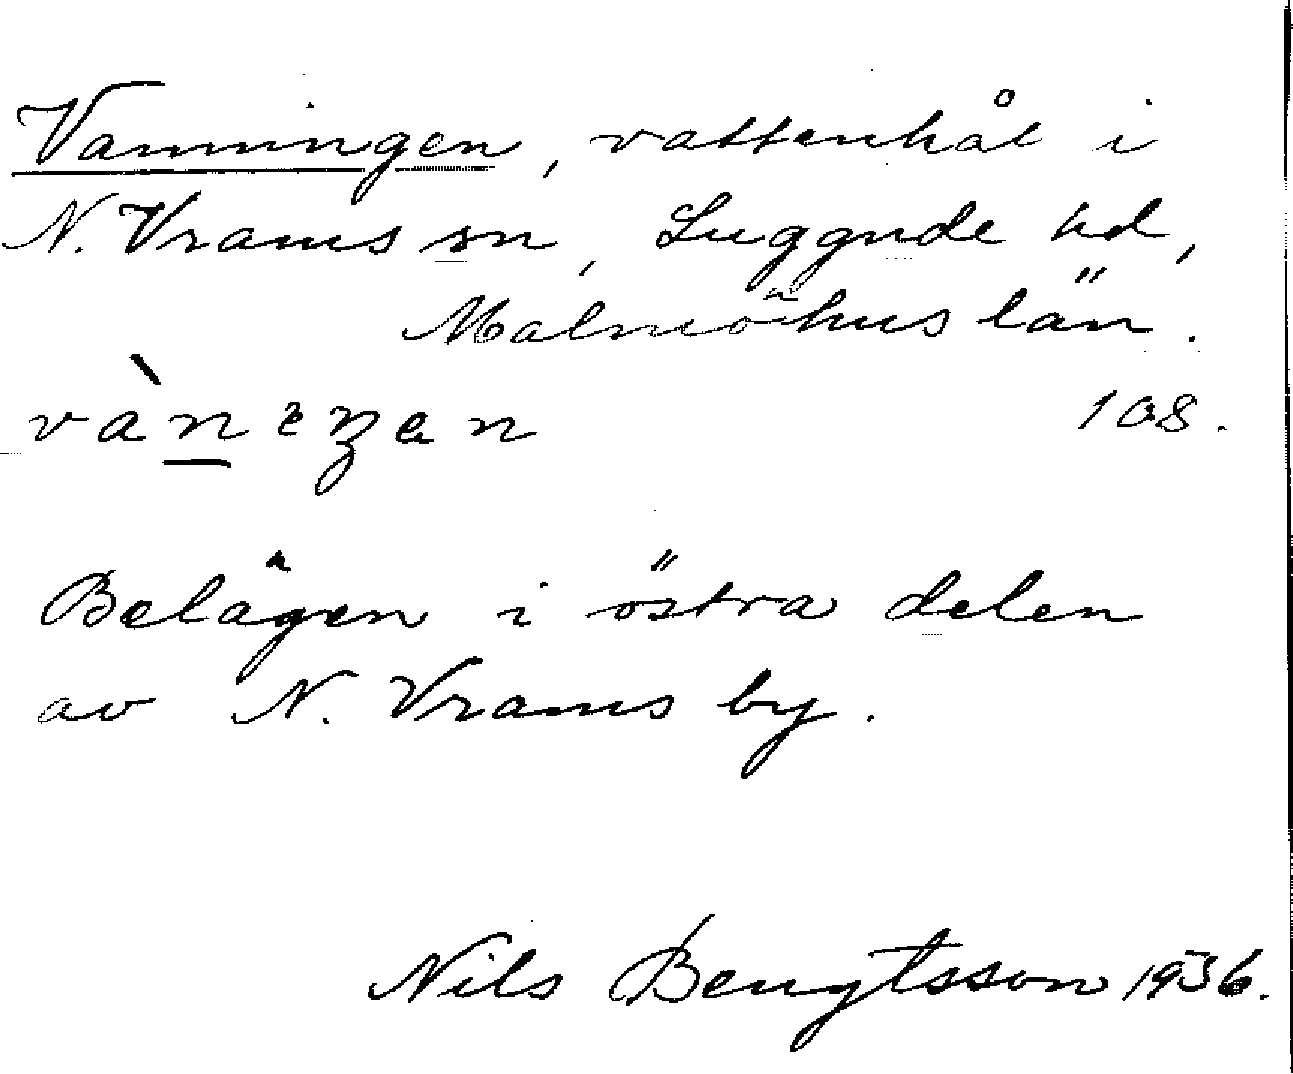 Vanningen, vattenhål i
N. Vrams sn, Luggude hd,
Malmöhus län.
vànıŋən 108.
Belägen i östra delen
av N. Vrams by.
Nils Bengtsson 1936.